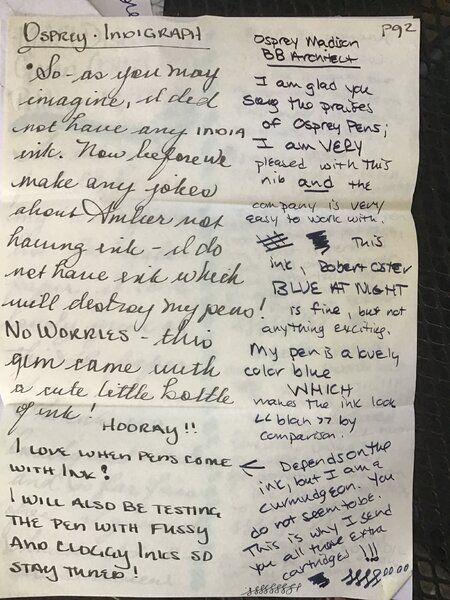 OSPREY · INDIGRAPH
So - as you may
imagine, I did
not have any INDIA
ink. Now before we
make any jokes
about Amber not
having ink - I do
not have ink which
will destroy my pens!
NO WORRIES - this
gem came with
a cute little bottle
of ink!
HOORAY!!
I LOVE WHEN PENS COME
WITH INK!
I WILL ALSO BE TESTING
THE PEN WITH FUSSY
AND CLOGGY INKS SO
STAY TUNED!
pg 2
OSPREY MADISON
BB ARCHITECT
I am glad you
sang the praises
of Osprey Pens;
I am VERY
pleased with this
nib and the
company is very
easy to work with.
This
ink, Robert Oster
BLUE AT NIGHT
is fine, but not
anything exciting.
My pen is a lovely
color blue
WHICH
makes the ink look
<< blah >> by
comparison.
← Depends on the
ink, but I am a
curmudgeon. You
do not seem to be.
This is why I send
you all those extra
cartridges!!!